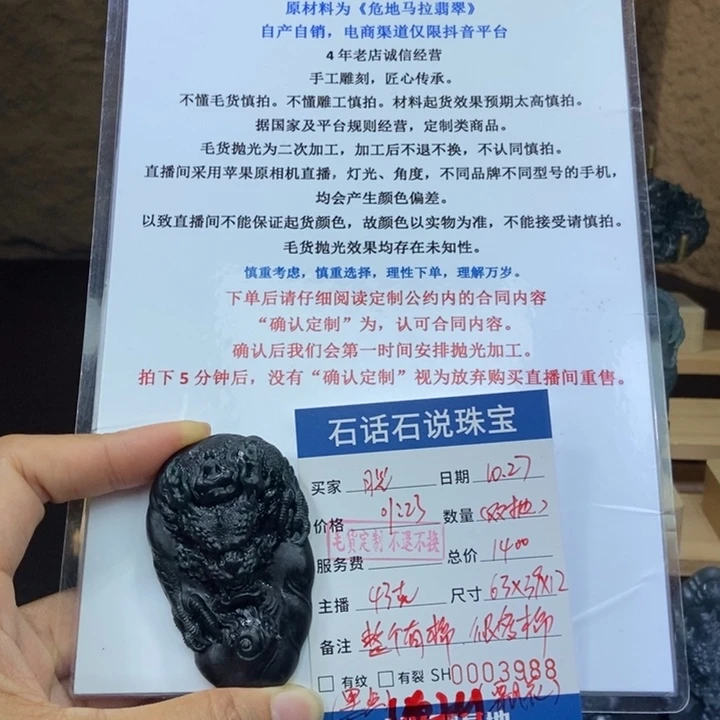 原材料为《危地马拉翡翠》
自产自销，电商渠道仅限抖音平台
4 年老店诚信经营
手工雕刻，匠心传承。
不懂毛货慎拍。不懂雕工慎拍。材料起货效果预期太高慎拍。
据国家及平台规则经营，定制类商品。
毛货抛光为二次加工，加工后不退不换，不认同慎拍。
直播间采用苹果原相机直播，灯光、角度，不同品牌不同型号的手机，
均会产生颜色偏差。
以致直播间不能保证起货颜色，故颜色以实物为准，不能接受请慎拍。
毛货抛光效果均存在未知性。
慎重考虑，慎重选择，理性下单，理解万岁。
下单后请仔细阅读定制公约内的合同内容
“确认定制”为，认可合同内容。
确认后我们会第一时间安排抛光加工。
拍下 5 分钟后，没有“确认定制”视为放弃购买直播间重售。
石话石说珠宝
买家 日期 10.27
价格 01:23 数量
毛货定制 不退不换
服务费 总价 1400
主播 43克 尺寸 63x39x12
备注 整个有棉
有纹 有裂 SH0003988